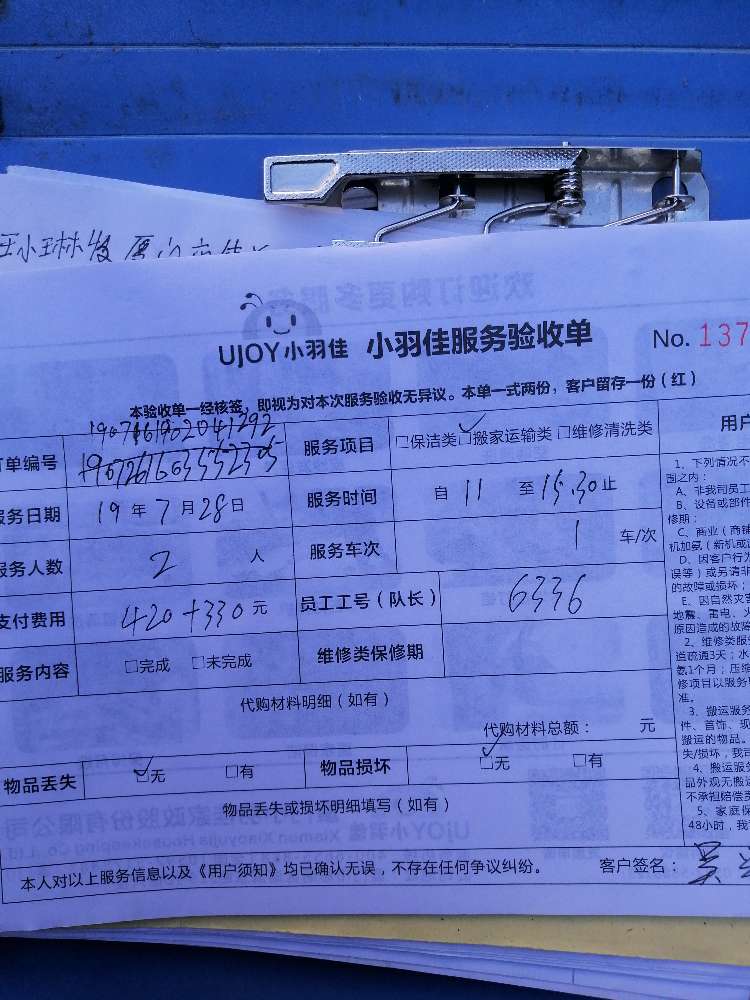 欢迎订购更多服务
UJOY小羽佳 小羽佳服务验收单
No. 137
本验收单一经核签，即视为对本次服务验收无异议。本单一式两份，客户留存一份（红）
订单编号 1907161902041292
服务项目 □保洁类☑搬家运输类 □维修清洗类
服务日期 19 年 7 月 28 日
服务时间 自 11 至 15.30 止
服务人数 2 人
服务车次 1 车/次
支付费用 420+330 元
员工工号（队长） 6336
服务内容 □完成 □未完成
维修类保修期
代购材料明细（如有）
代购材料总额： 元
物品丢失 ☑无 □有
物品损坏 ☑无 □有
物品丢失或损坏明细填写（如有）
本人对以上服务信息以及《用户须知》均已确认无误，不存在任何争议纠纷。
客户签名： 吴
用户
1、下列情况不
围之内：
A、非我司员工
B、设备或部件
修期；
C、商业（商铺
机加氨（新机或
D、因客户行为
误等）或另请非
的故障或损坏；
E、因自然灾害
地震、雷电、火
原因造成的故障
2、维修类服
道疏通3天；水
氨1个月；压缩
修项目以服务
准。
3、搬运服务
件、首饰、现
搬运的物品。
失/损坏，我司
4、搬运服务
品外观无搬运
不承担赔偿责
5、家庭保
48小时，我